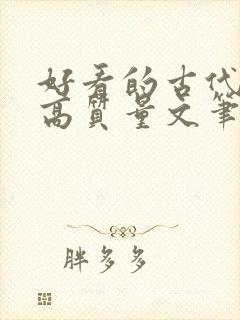 好看的古代
高质量文笔
胖多多